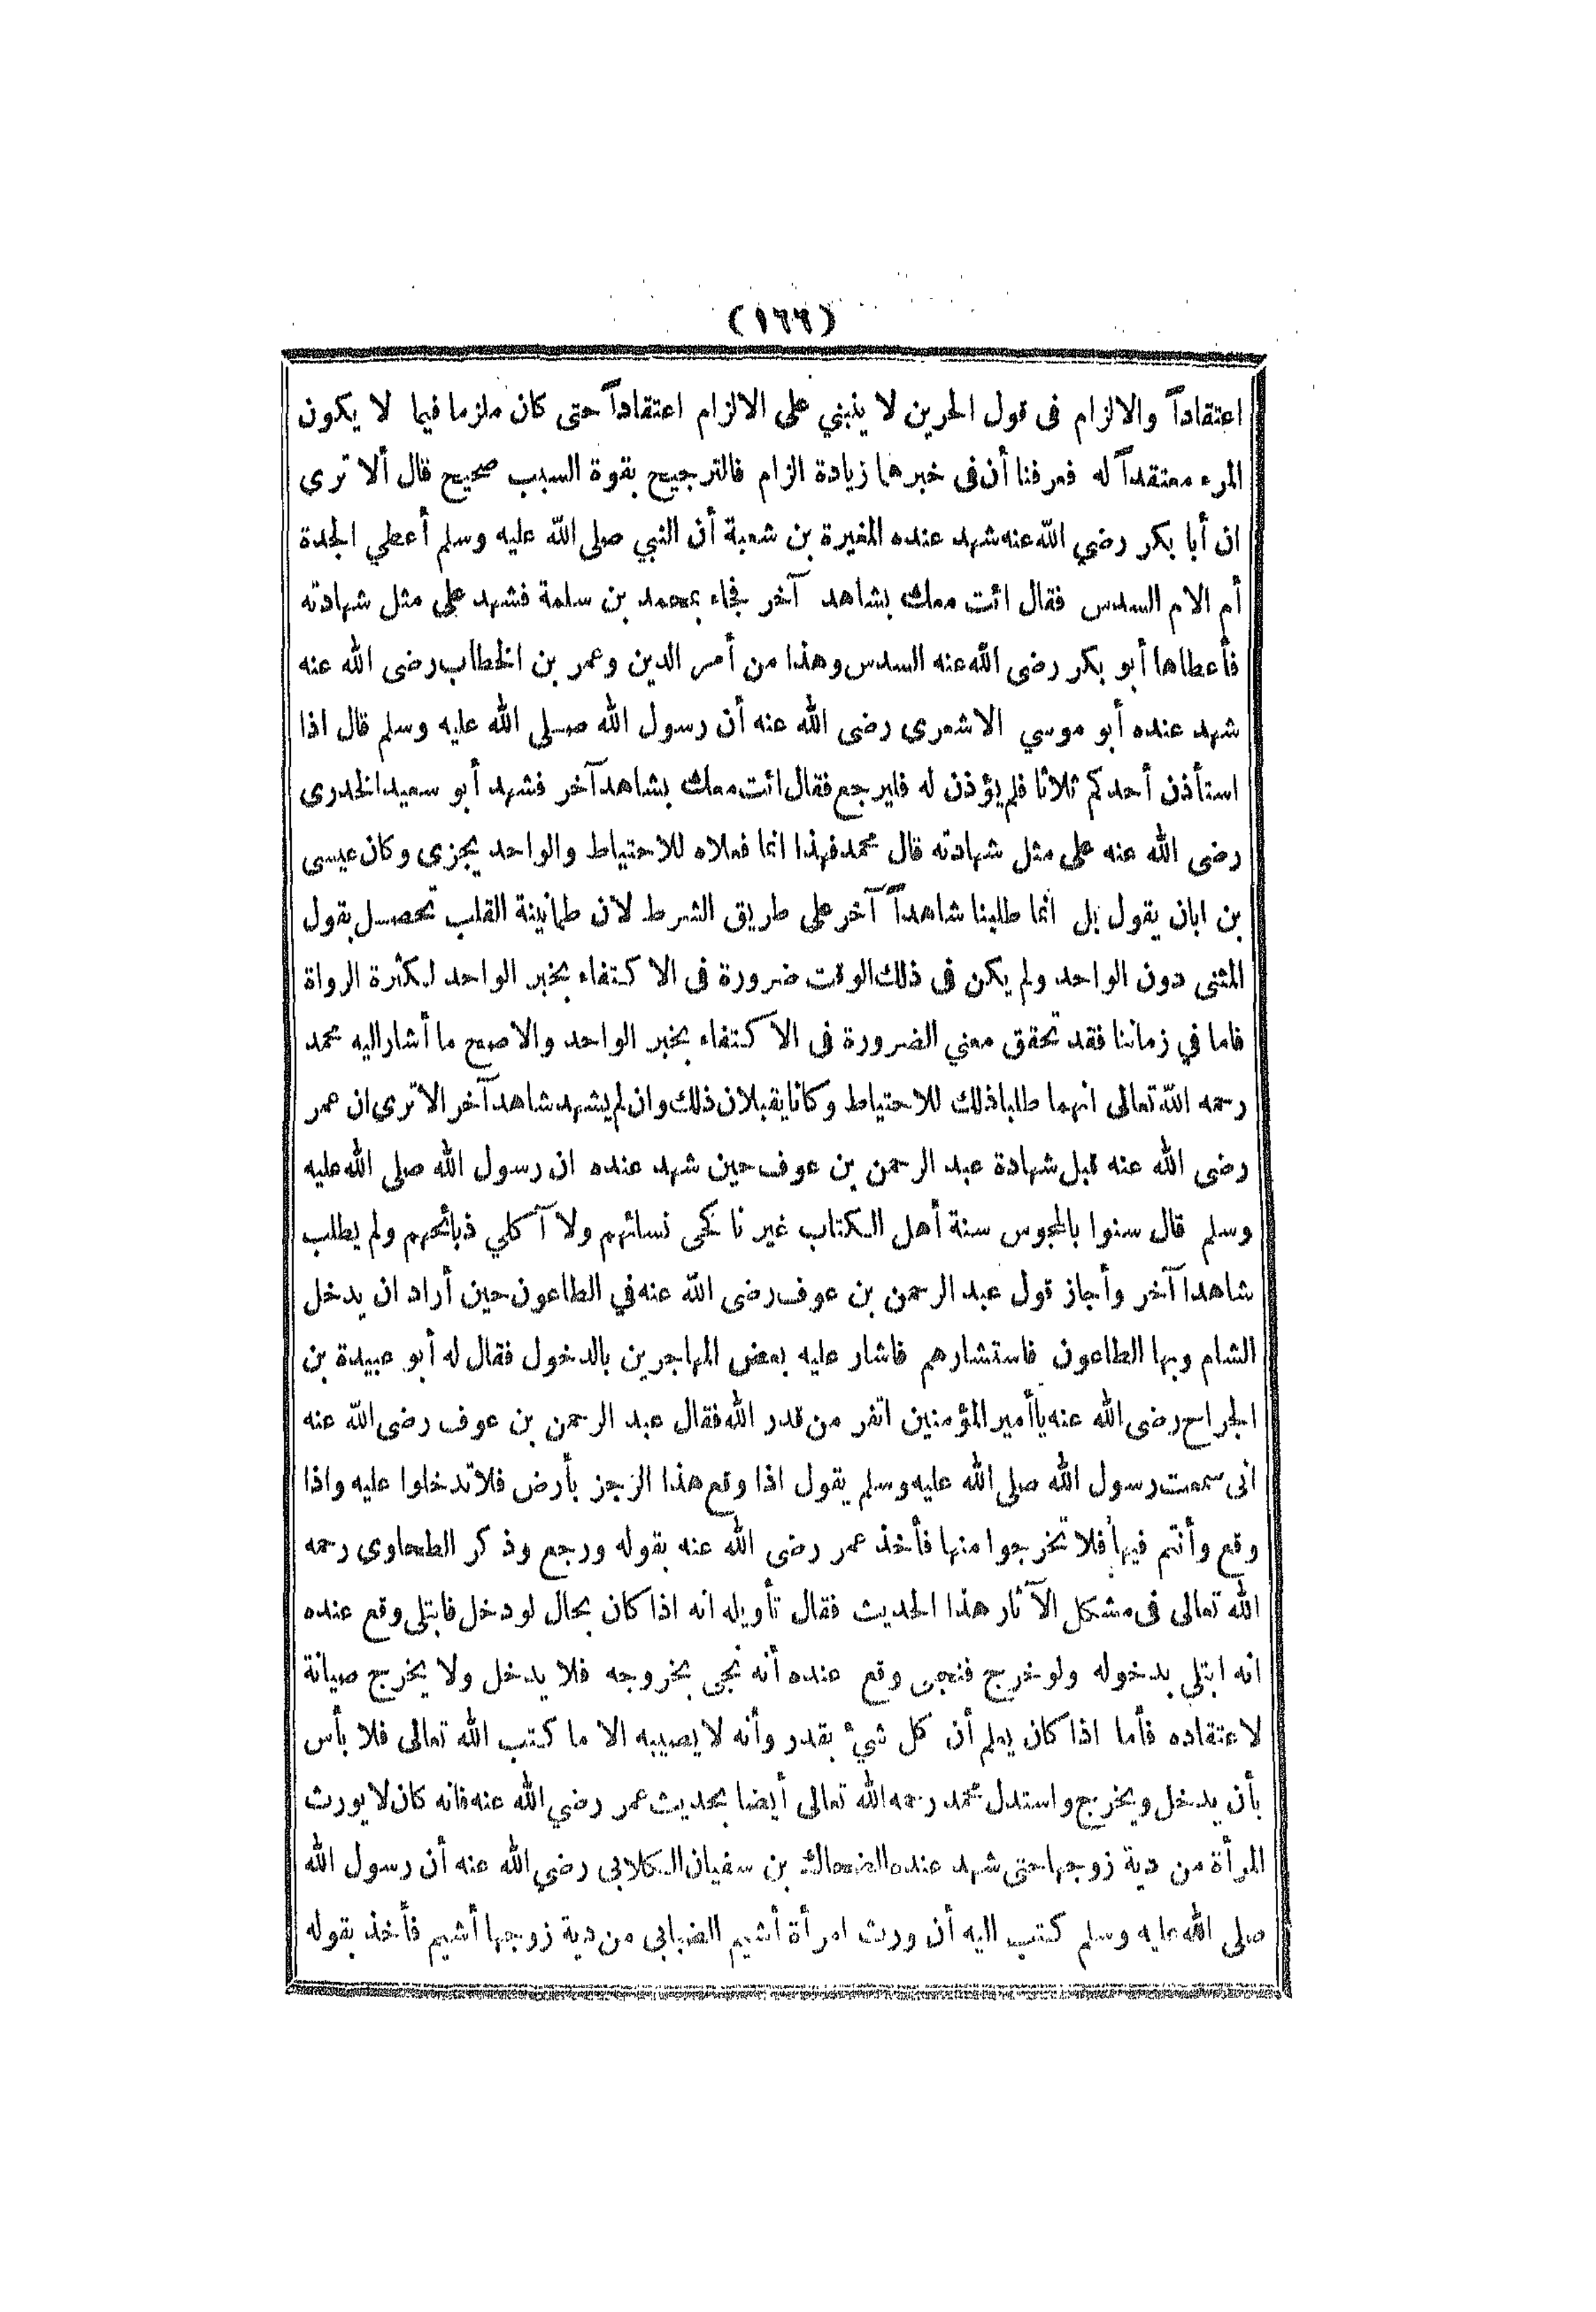 (١٦٦)
اعتقاداً والالزام فى قول الحرين لا ينبني على الالزام اعتقاداً حتى كان ملزما فيما لا يكون
المرء معتقداً له فعرفنا أن فى خبرهما زيادة الزام فالترجيح بقوة السبب صحيح قال ألا ترى
ان أبا بكر رضي الله عنه شهد عنده المغيرة بن شعبة أن النبي صلى الله عليه وسلم أعطي الجدة
أم الام السدس فقال ائت معك بشاهد آخر فجاء بمحمد بن سلمة فشهد على مثل شهادته
فأعطاها أبو بكر رضى الله عنه السدس وهذا من أمر الدين وعمر بن الخطاب رضى الله عنه
شهد عنده أبو موسي الاشعرى رضى الله عنه أن رسول الله صلى الله عليه وسلم قال اذا
استأذن أحدكم ثلاثا فلم يؤذن له فليرجع فقال ائت معك بشاهد آخر فشهد أبو سعيد الخدرى
رضى الله عنه على مثل شهادته قال محمد فهذا انما فعلاه للاحتياط والواحد يجزى وكان عيسى
بن ابان يقول بل انما طلبنا شاهداً آخر على طريق الشرط لان طمانينة القلب تحصل بقول
المثنى دون الواحد ولم يكن فى ذلك الوقت ضرورة فى الاكتفاء بخبر الواحد لكثرة الرواة
فاما في زماننا فقد تحقق معني الضرورة فى الاكتفاء بخبر الواحد والاصح ما أشار اليه محمد
رحمه الله تعالى انهما طلبا ذلك للاحتياط وكانا يقبلان ذلك وان لم يشهد شاهد آخر الا ترى ان عمر
رضى الله عنه قبل شهادة عبد الرحمن بن عوف حين شهد عنده ان رسول الله صلى الله عليه
وسلم قال سنوا بالمجوس سنة أهل الكتاب غير ناكحى نسائهم ولا آكلي ذبائحهم ولم يطلب
شاهدا آخر وأجاز قول عبد الرحمن بن عوف رضى الله عنه في الطاعون حين أراد ان يدخل
الشام وبها الطاعون فاستشارهم فاشار عليه بعض المهاجرين بالدخول فقال له أبو عبيدة بن
الجراح رضى الله عنه يا أمير المؤمنين اتفر من قدر الله فقال عبد الرحمن بن عوف رضى الله عنه
انى سمعت رسول الله صلى الله عليه وسلم يقول اذا وقع هذا الرجز بأرض فلا تدخلوا عليه واذا
وقع وأنتم فيها فلا تخرجوا منها فأخذ عمر رضى الله عنه بقوله ورجع وذكر الطحاوى رحمه
الله تعالى فى مشكل الآثار هذا الحديث فقال تأويله انه اذا كان بحال لو دخل فابتلى وقع عنده
انه ابتلي بدخوله ولو خرج فنجى وقع عنده أنه نجى بخروجه فلا يدخل ولا يخرج صيانة
لاعتقاده فأما اذا كان يعلم أن كل شيء بقدر وأنه لا يصيبه الا ما كتب الله تعالى فلا بأس
بأن يدخل ويخرج واستدل محمد رحمه الله تعالى أيضا بحديث عمر رضي الله عنه فانه كان لا يورث
المرأة من دية زوجها حتى شهد عنده الضحاك بن سفيان الكلابى رضي الله عنه أن رسول الله
صلى الله عليه وسلم كتب اليه أن ورث امرأة أشيم الضبابى من دية زوجها أشيم فأخذ بقوله